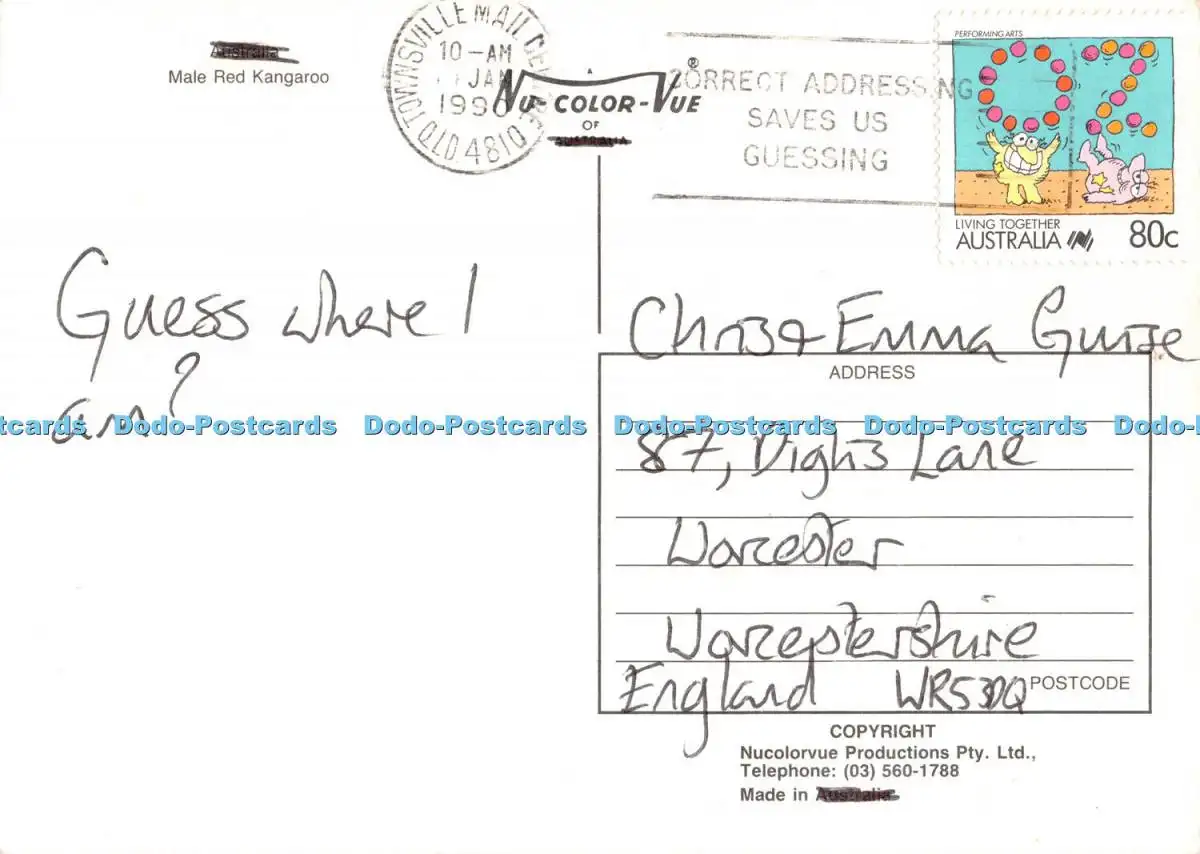 Australia
Male Red Kangaroo
TOWNSVILLE MAIL CENTRE
10-AM
JAN
1990
QLD 4810
A
NU-COLOR-VUE®
OF
AUSTRALIA
CORRECT ADDRESSING
SAVES US
GUESSING
PERFORMING ARTS
OZ
LIVING TOGETHER
AUSTRALIA 80c
Guess where I
am?
Chris & Emma Guise
ADDRESS
Dodo-Postcards Dodo-Postcards Dodo-Postcards Dodo-Postcards
87, Diglis Lane
Worcester
Worcestershire
England WR53DQ
POSTCODE
COPYRIGHT
Nucolorvue Productions Pty. Ltd.,
Telephone: (03) 560-1788
Made in Australia